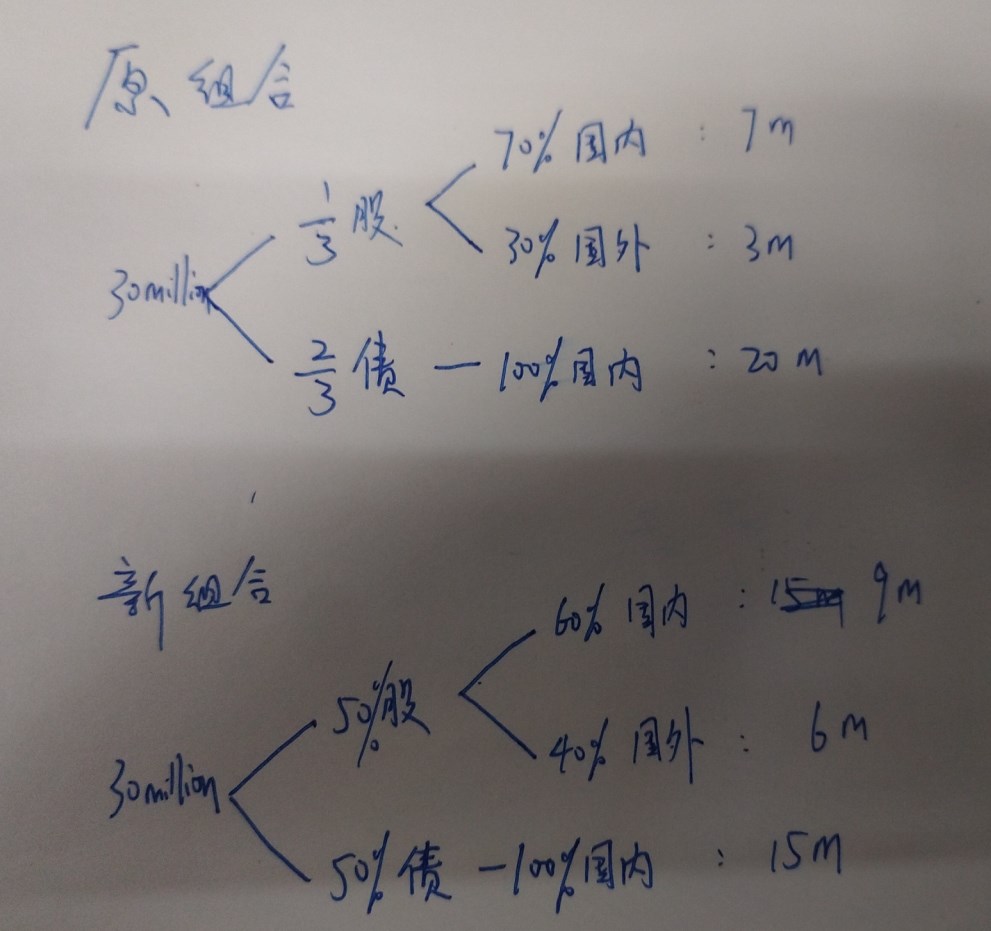 原组合
70% 国内 : 7m
1/3 股
30% 国外 : 3m
30million
2/3 债 — 100% 国内 : 20m
新组合
60% 国内 : 15m 9m
50% 股
40% 国外 : 6m
30million
50% 债 — 100% 国内 : 15m